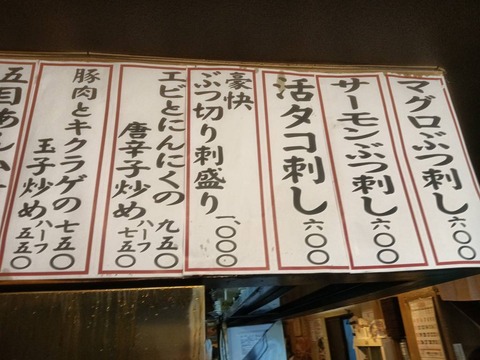 マグロぶつ刺し 六〇〇
サーモンぶつ刺し 六〇〇
活タコ刺し 六〇〇
豪快
ぶつ切り刺盛り 一、〇〇〇
エビとにんにくの 九五〇
唐辛子炒め ハーフ 七五〇
豚肉とキクラゲの 七五〇
玉子炒め ハーフ 五五〇
五目あん